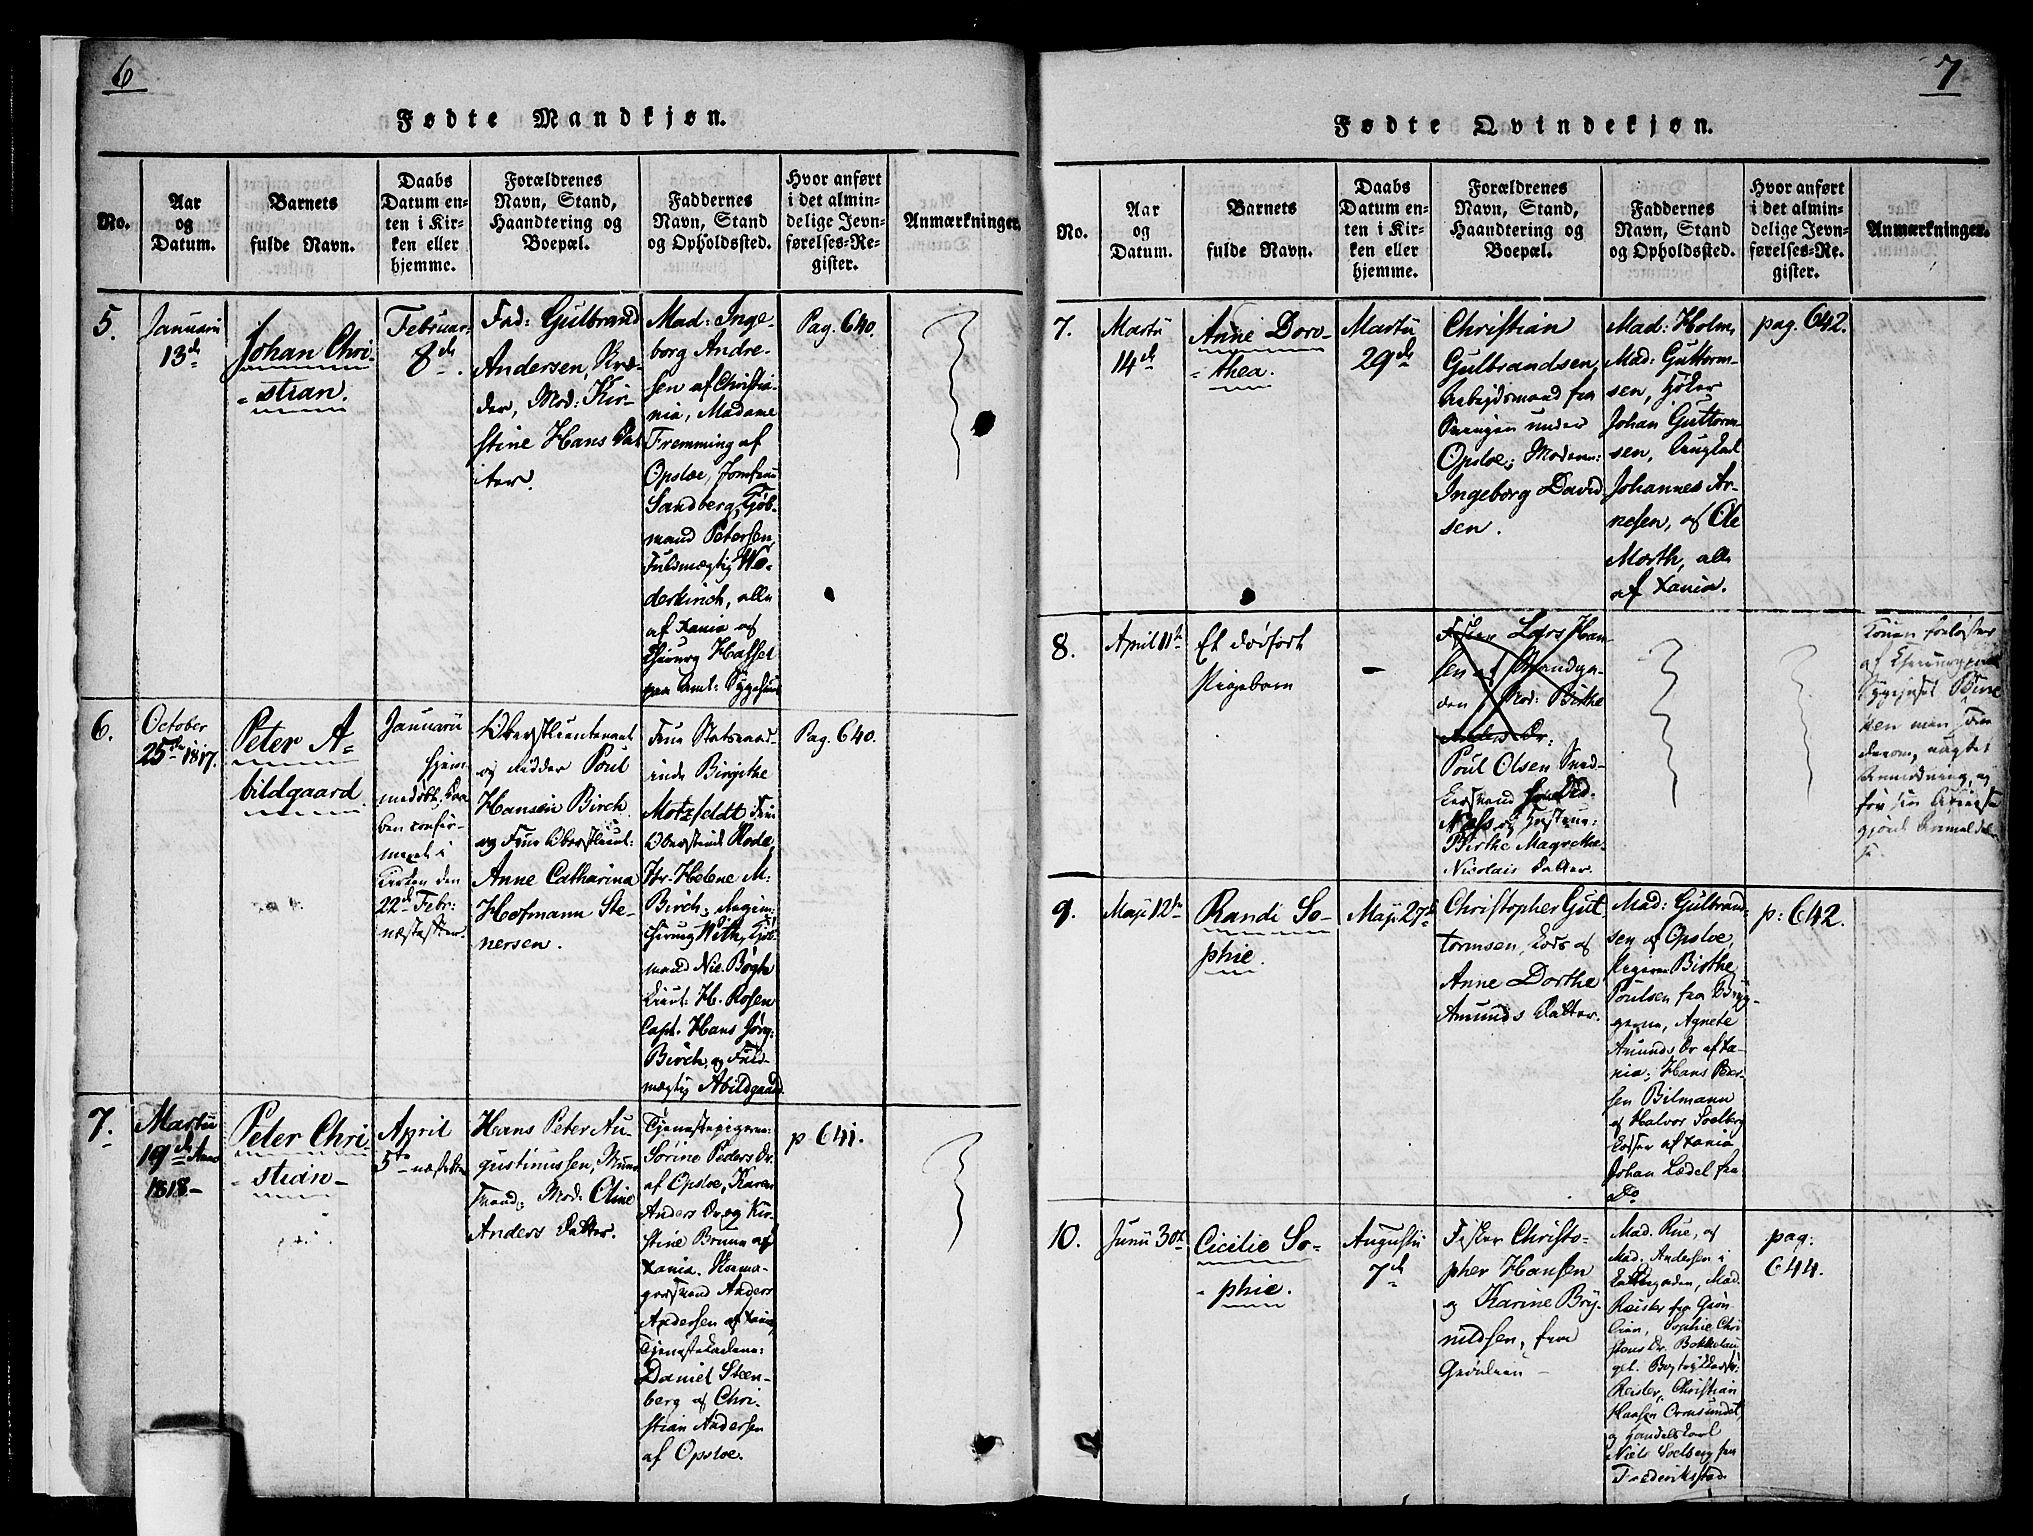 6
Fødte Mandkjøn.
No.
Aar
og
Datum.
Barnets
fulde Navn.
Daabs
Datum en-
ten i Kir-
ken eller
hjemme.
Forældrenes
Navn, Stand,
Haandtering og
Boepæl.
Faddernes
Navn, Stand
og Opholdssted.
Hvor anført
i det almin-
delige Jevn-
førelses-Re-
gister.
Anmærkninger.
5.
Januarii
13de
Johan Chri-
stian.
Februar:
8de
Fad: Gulbrand
Andersen,
Mod: Kir-
stine Hans Dat
ter.
Mad: Inge-
borg Andre-
sen af Christia-
nia, Madame
Fremming af
Opsloe, Jomfrue
Sandberg, Kjøb-
mand Petersen,
Fuldmægtig We-
derkinch, alle
af Xania og
Chirurg Hassel
paa Amt: Sygehuus
Pag. 640.
6.
October
25de 1817.
Peter A-
bildgaard
Januarii
hjem-
medøbt, Daa
ben confir-
meret i
Kirken den
22de Febr:
næstefter.
Oberstlieutenant
og Ridder Poul
Hansen Birch
og Frue Oberstlieut:
Anne Catharina
Hofmann Ste-
nersen.
Frue Statsraad-
inde Birgithe
Motzfeldt, Frue
Oberstinde Rode,
Fr. Helene M:
Birch, Regim:
Chirurg With, Kjøb-
mand Nic. Bøgh
Lieut: H. Rosen
Capt. Hans Jørg:
Birch, og Fuld-
mægtig Abildgaard
Pag. 640.
7.
Martii
19de Anno
1818-
Peter Chri
stian
April
5te næstefter
Hans Peter Au-
gustinussen, Muur
mand, Mod: Oline
Anders Datter.
Tjenestepigerne:
Sørine Peders Dr.
af Opsloe, Karen
Anders Dr. og Kir-
stine Bruun af
Xania.
Anders
Andersen af Xania
Tjenestekarlene:
Daniel Steen-
berg og Chri-
stian Andersen
af Opsloe.
p 641.
7
Fødte Qvindekjøn.
No.
Aar
og
Datum.
Barnets
fulde Navn.
Daabs
Datum en-
ten i Kir-
ken eller
hjemme.
Forældrenes
Navn, Stand,
Haandtering og
Boepæl.
Faddernes
Navn, Stand
og Opholdssted.
Hvor anført
i det almin-
delige Jevn-
førelses-Re-
gister.
Anmærkninger.
7.
Martii
14de
Anne Doro-
thea.
Martii
29de
Christian
Gulbrandsen,
Arbejdsmand fra
under
Opsloe; Moderen:
Ingeborg David
sen.
Mad: Holm,
Mad: Guttorm-
sen, Høker
Johan Guttorm-
sen, Ungkarl
Johannes Ar-
nesen, og Ole
Morth, alle
af Xania.
pag. 642.
8.
April 11te
Et dødfødt
Pigebarn
-
Fisker Lars Han-
sen af Strandga-
den, Mod: Birthe
Anders Dr:
Poul Olsen
Ness og Hustrue:
Birthe Magrethe
Nicolais Datter.
Konen forløstes
af Chirurg
9.
Maji 12te
Randi So-
phie.
Maji 27de
Christopher Gut
tormsen, Lods og
Anne Dorthe
Amunds Datter.
Mad: Gulbrand-
sen af Opsloe,
Pigerne Birthe
Poulsen fra Bryg-
gerne, Agnete
Amunds Dr af Xa-
nia; Hans Peter-
sen Bilmann
og Halvor Soelberg
Lodser af Xania
Johan Lædel fra
Do
p: 642.
10.
Junii 30te
Cicilie So-
phie.
Augustii
7de
Fisker Christo-
pher Hansen
og Karine Bry-
nildsen, fra
Grønlien
Mad. Rue, og
Mad. Andersen i
Mad.
Reisler fra Grøn-
lien, Sophie Chri
stens Dr.
Reisler, Christian
Hansen Ormsundet,
og Handelskarl
Niels Soelberg fra
Frederikstad
pag:
644.